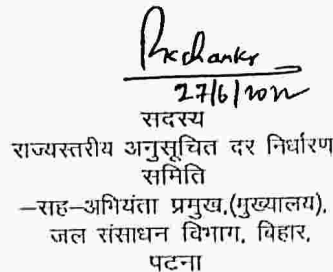 27/6/2022
सदस्य
राज्यस्तरीय अनुसूचित दर निर्धारण
समिति
–सह–अभियंता प्रमुख,(मुख्यालय),
जल संसाधन विभाग, बिहार,
पटना